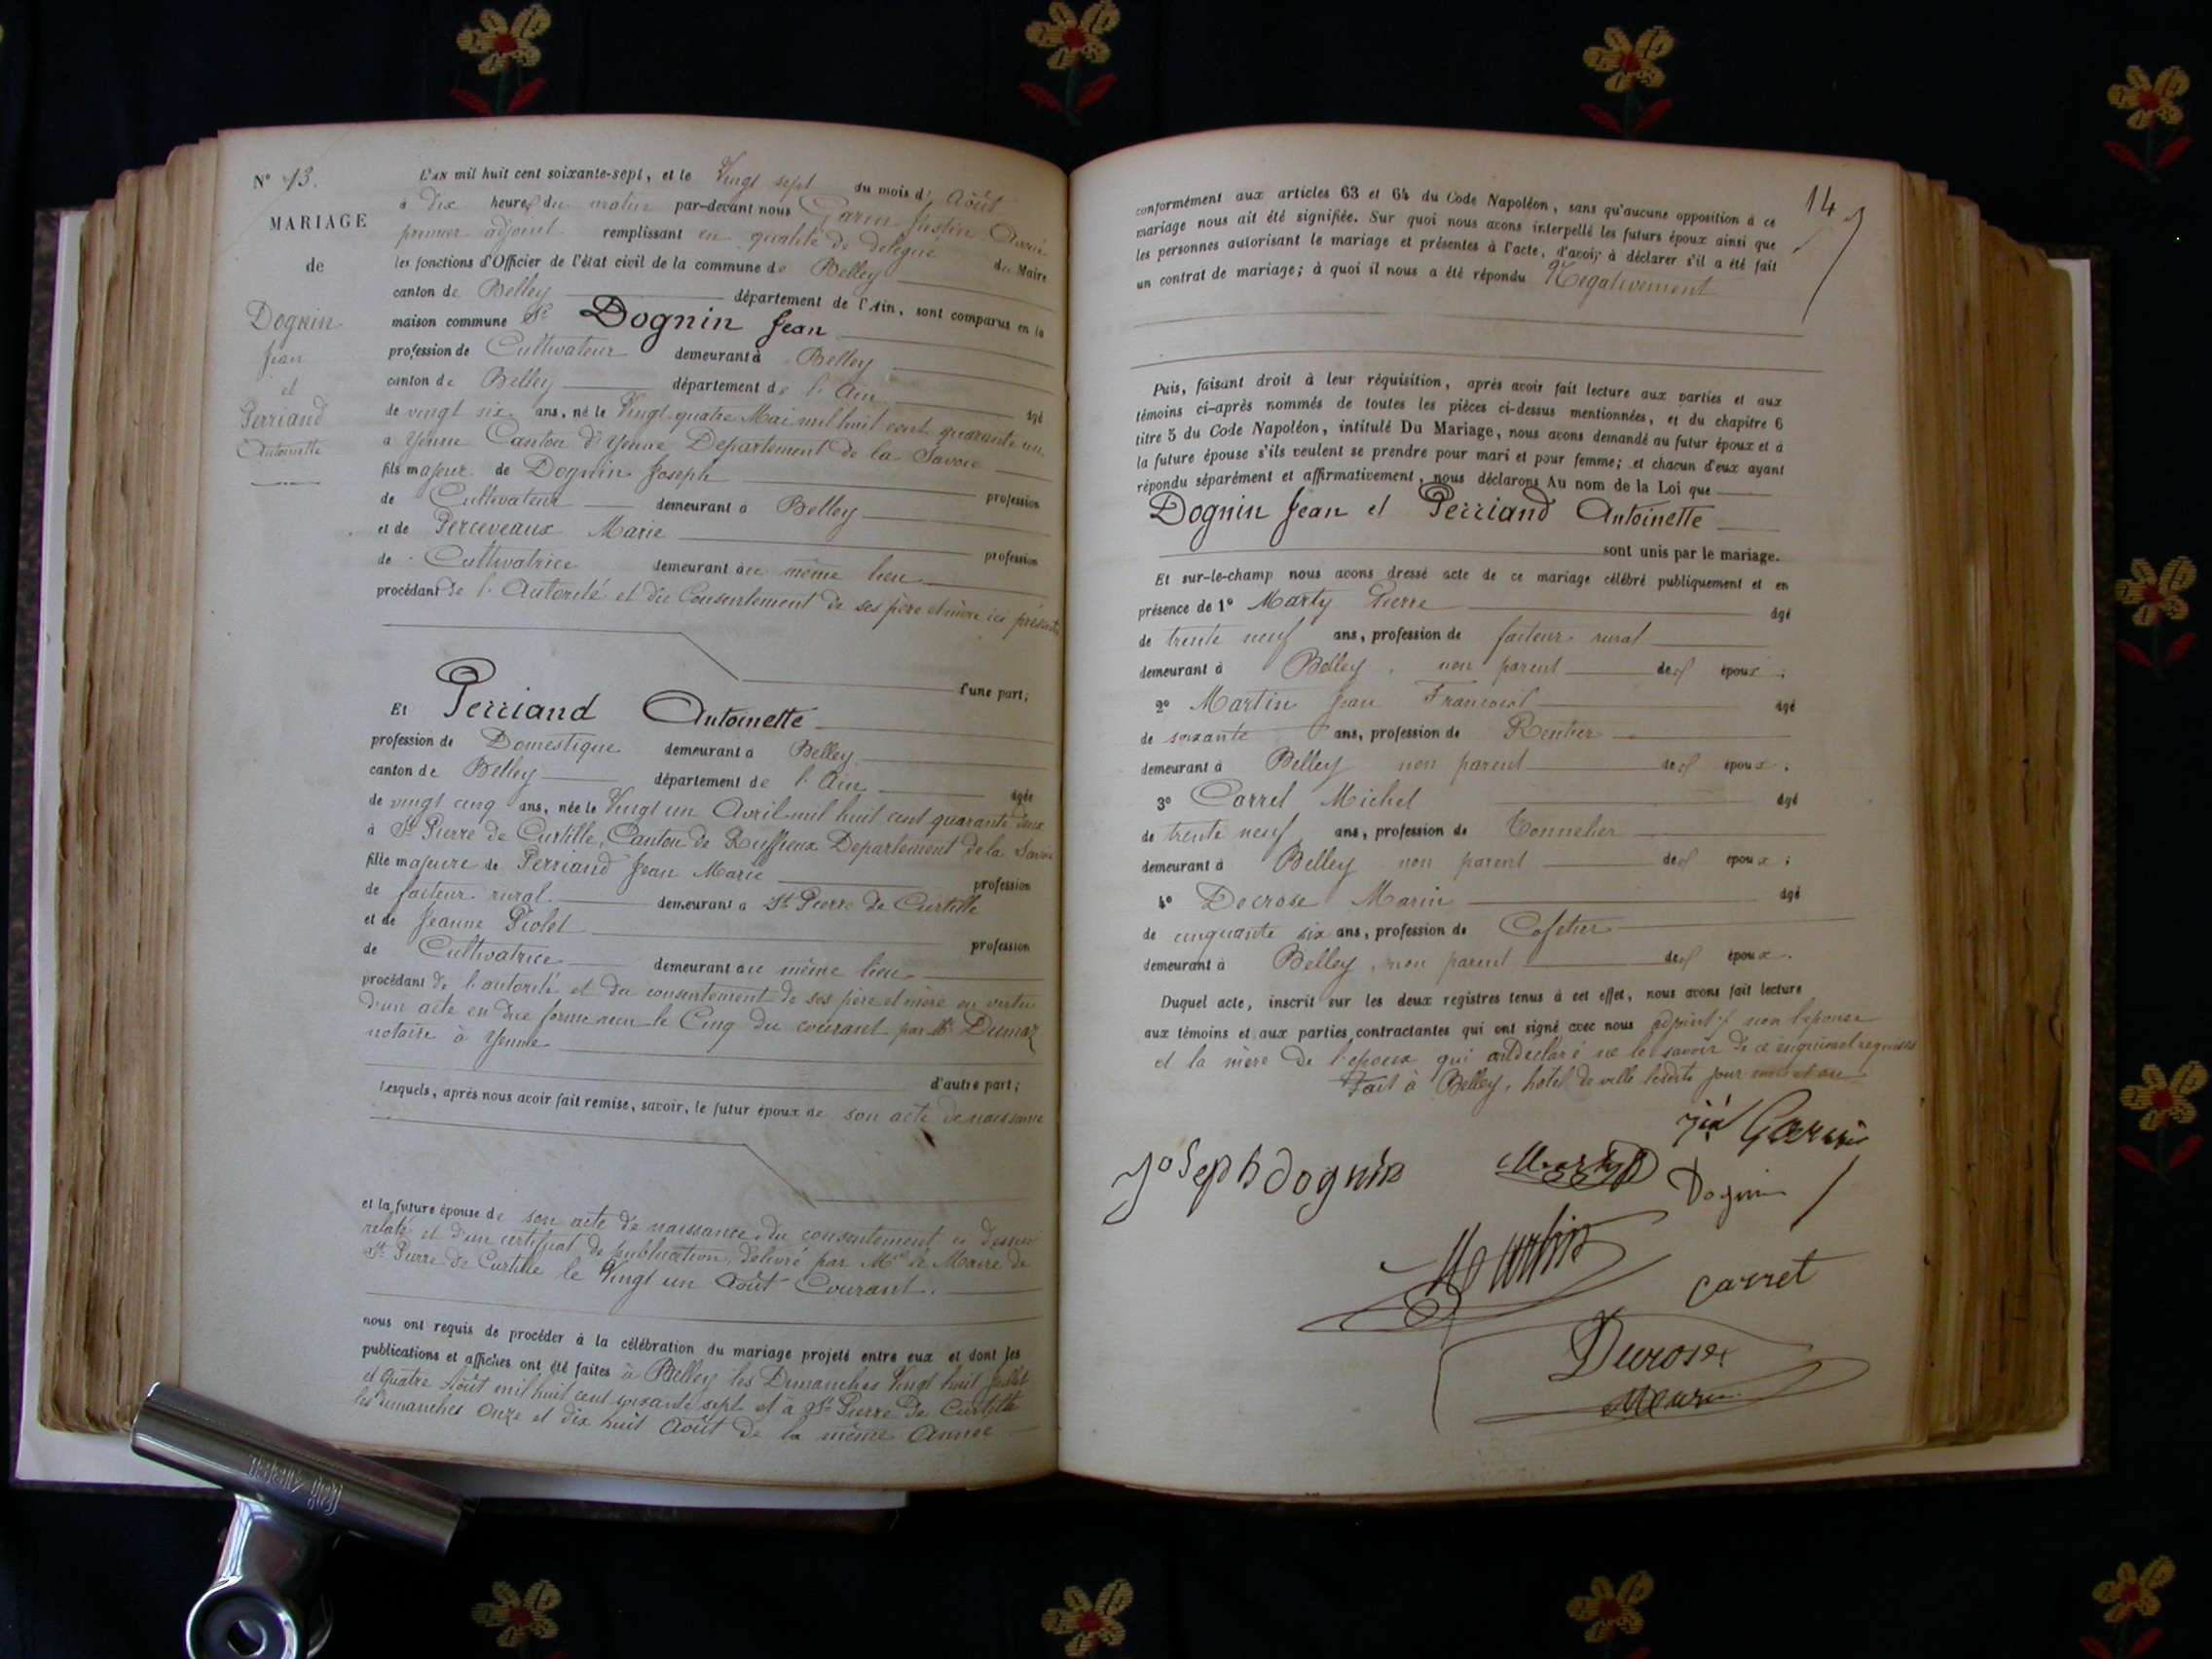 N° 13.
MARIAGE
de
Dognin
Jean
et
Perriand
Antoinette
L'AN mil huit cent soixante-sept, et le Vingt sept du mois d' Août
à dix heures du matin par-devant nous Garin Justin
premier adjoint remplissant en qualité de délégué du Maire
les fonctions d'Officier de l'état civil de la commune de Belley
canton de Belley département de l'Ain, sont comparus en la
maison commune Sr Dognin Jean
profession de Cultivateur demeurant à Belley
canton de Belley département de l'Ain âgé
de vingt six ans, né le Vingt quatre Mai mil huit cent quarante un
à Yenne Canton d'Yenne Departement de la Savoie
fils majeur de Dognin Joseph profession
de Cultivateur demeurant à Belley
et de Perceveaux Marie profession
de Cultivatrice demeurant au même lieu
procédant de l'Autorité et du Consentement de ses père et mère ici présents
d'une part;
Et Perriand Antoinette
profession de Domestique demeurant à Belley
canton de Belley département de l'Ain âgée
de vingt cinq ans, née le Vingt un Avril mil huit cent quarante deux
à St Pierre de Curtille, Canton de Ruffieux Departement de la Savoie
fille majeure de Perriand Jean Marie profession
de facteur rural demeurant à St Pierre de Curtille
et de Jeanne Piolet profession
de Cultivatrice demeurant au même lieu
procédant de l'autorité et du consentement de ses père et mère en vertu
d'un acte en due forme reçu le Cinq du courant par Me Dumaz
notaire à Yenne
d'autre part;
Lesquels, après nous avoir fait remise, savoir, le futur époux de son acte de naissance
et la future épouse de son acte de naissance du consentement ci dessus
relaté et d'un certificat de publication délivré par Mr le Maire de
St Pierre de Curtille le Vingt un Août Courant.
nous ont requis de procéder à la célébration du mariage projeté entre eux et dont les
publications et affiches ont été faites à Belley les Dimanches Vingt huit Juillet
et Quatre Août mil huit cent soixante sept et à St Pierre de Curtille
les dimanches Onze et dix huit Août de la même Année
14
conformément aux articles 63 et 64 du Code Napoléon, sans qu'aucune opposition à ce
mariage nous ait été signifiée. Sur quoi nous avons interpellé les futurs époux ainsi que
les personnes autorisant le mariage et présentes à l'acte, d'avoir à déclarer s'il a été fait
un contrat de mariage; à quoi il nous a été répondu Négativement
Puis, faisant droit à leur réquisition, après avoir fait lecture aux parties et aux
témoins ci-après nommés de toutes les pièces ci-dessus mentionnées, et du chapitre 6
titre 5 du Code Napoléon, intitulé Du Mariage, nous avons demandé au futur époux et à
la future épouse s'ils veulent se prendre pour mari et pour femme; et chacun d'eux ayant
répondu séparément et affirmativement, nous déclarons Au nom de la Loi que
Dognin Jean et Perriand Antoinette
sont unis par le mariage.
Et sur-le-champ nous avons dressé acte de ce mariage célébré publiquement et en
présence de 1° Marty Pierre âgé
de trente neuf ans, profession de facteur rural
demeurant à Belley, non parent des époux;
2° Martin Jean François âgé
de soixante ans, profession de Rentier
demeurant à Belley non parent des époux;
3° Carret Michel âgé
de trente neuf ans, profession de Tonnelier
demeurant à Belley non parent des époux;
4° Decrose Marin âgé
de cinquante six ans, profession de Cafetier
demeurant à Belley, non parent des époux.
Duquel acte, inscrit sur les deux registres tenus à cet effet, nous avons fait lecture
aux témoins et aux parties contractantes qui ont signé avec nous adjoint non l'épouse
et la mère de l'époux qui ont déclaré ne le savoir de ce enquis et requises
Fait à Belley, hôtel de ville lesdits jour mois et an
Garin
Joseph dognin
Marty
Dognin
Martin
Carret
Decrose
Marin